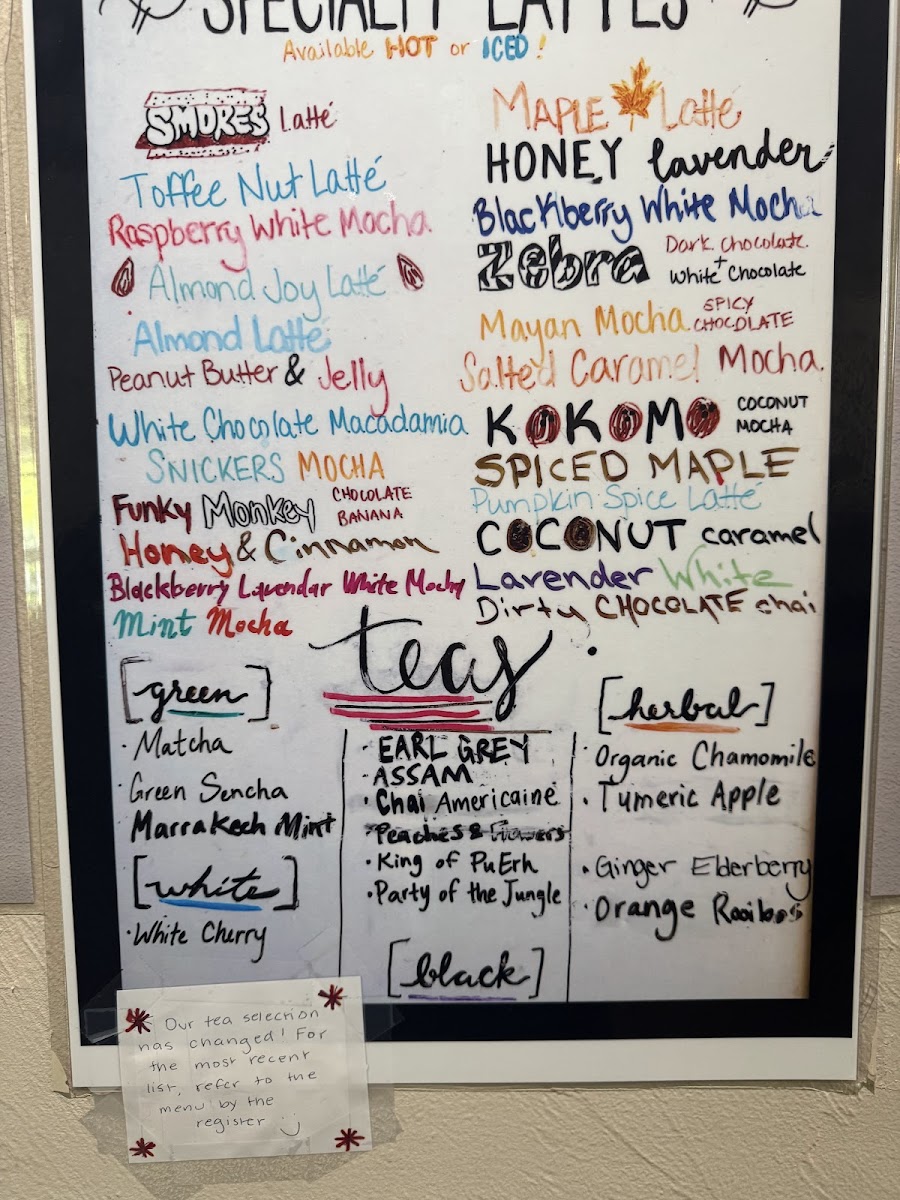 SPECIALTY LATTES
Available HOT or ICED!
SMORES Latté
Toffee Nut Latté
Raspberry White Mocha
Almond Joy Latté
Almond Latté
Peanut Butter & Jelly
White Chocolate Macadamia
SNICKERS MOCHA
Funky Monkey CHOCOLATE BANANA
Honey & Cinnamon
Blackberry Lavendar White Mocha
Mint Mocha
MAPLE Latté
HONEY lavender
Blackberry White Mocha
Zebra Dark Chocolate + White Chocolate
Mayan Mocha SPICY CHOCOLATE
Salted Caramel Mocha
KOKOMO COCONUT MOCHA
SPICED MAPLE
Pumpkin Spice Latté
COCONUT caramel
Lavender White
Dirty CHOCOLATE chai
teas
[green]
· Matcha
· Green Sencha
Marrakech Mint
[white]
· White Cherry
· EARL GREY
· ASSAM
· Chai Americaine
· Peaches & Flowers
· King of PuErh
· Party of the Jungle
[black]
[herbal]
Organic Chamomile
· Tumeric Apple
· Ginger Elderberry
· Orange Rooibos
Our tea selection
has changed! For
the most recent
list, refer to the
menu by the
register